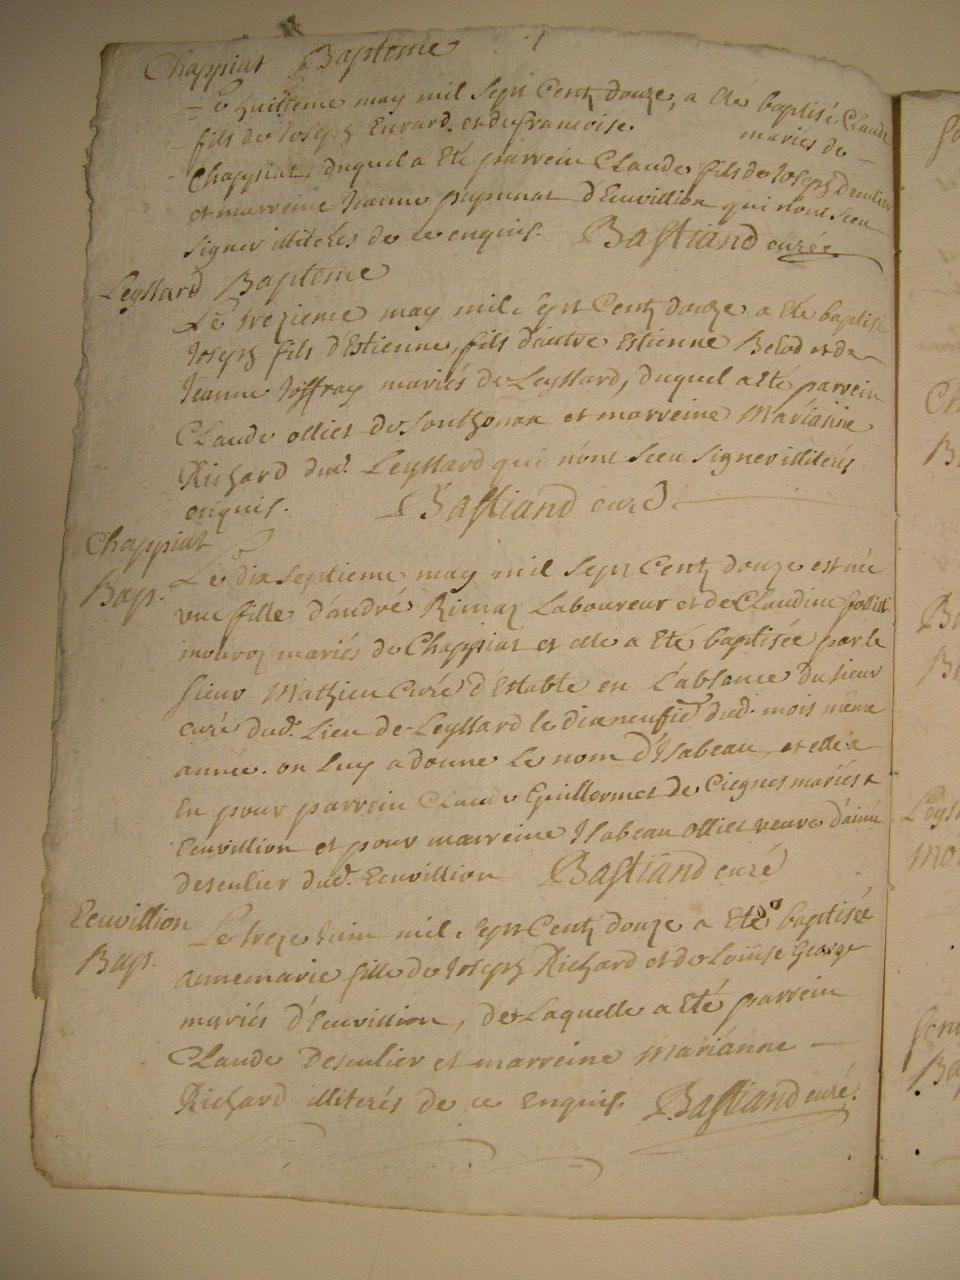 Chappiat Baptome
Le huitieme may mil Sept Centz douze, a Eté baptisé Claude
fils de Joseph Evrard et de francoise mariés de
Chappiat, duquel a Eté parrein Claude fils de Joseph Desculier
et marreine Jeanne d'Ecuvillion qui n'ont Sceu
Signer illiterés de ce enquis. Bastiand curé
Leyssard Baptome
Le trezieme may mil Sept Centz douze a Eté baptisé
Joseph fils d'Estienne, fils d'autre Estienne Belod et de
Jeanne Joffray mariés de Leyssard, duquel a Eté parrein
Claude olliet de Sonthonax et marreine Marianne
Richard dud. Leyssard qui n'ont Sceu Signer illiterés
enquis. Bastiand curé
Chappiat
Bap.
Le dix Septieme may mil Sept Centz douze est née
une fille d'andré Rimaz Laboureur et de Claudine
mariés de Chappiat et elle a Eté baptisée par le
sieur Mathieu Curé d'Estable en L'absence du sieur
curé dud. Lieu de Leyssard le dixneufie dud. mois même
année. on Luy a donné Le nom d'Isabeau, et elle a
Eu pour parrein Claude Guillermet de Ciegnes mariés a
Ecuvillion et pour marreine Isabeau olliet veuve d'aimé
Desculier dud. Ecuvillion Bastiand curé
Ecuvillion
Bap.
Le treze Juin mil Sept Centz douze a Eté baptisée
annemarie fille de Joseph Richard et de Loüise George
mariés d'Ecuvillion, de Laquelle a Eté parrein
Claude Desculier et marreine Marianne
Richard illiterés de ce Enquis. Bastiand curé.